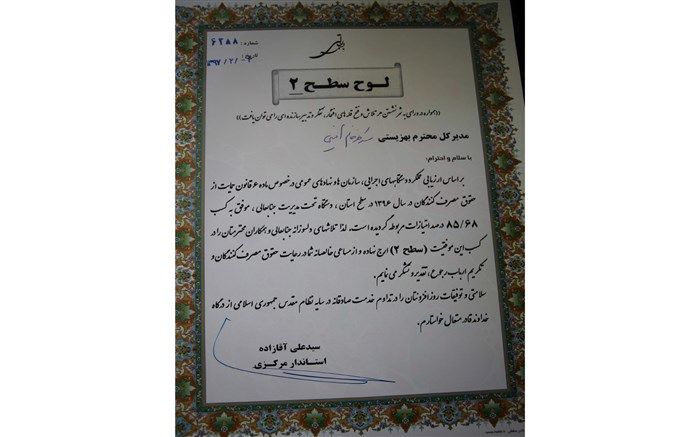 شماره: ۶۲۸۸
تاریخ: ۱۳۹۷/۲/
لوح سطح ۲
مدیر کل محترم بهزیستی
با سلام و احترام؛
براساس ارزیابی عملکرد دستگاههای اجرایی، سازمان ها و نهادهای عمومی در خصوص ماده ۶ قانون حمایت از
حقوق مصرف کنندگان در سال ۱۳۹۶ در سطح استان، دستگاه تحت مدیریت جنابعالی، موفق به کسب
۸۵/۶۸ درصد امتیازات مربوطه گردیده است. لذا تلاشهای دلسوزانه جنابعالی و همکاران محترمتان را در
کسب این موفقیت (سطح ۲) ارج نهاده و از مساعی خالصانه شما در رعایت حقوق مصرف کنندگان و
تکریم ارباب رجوع، تقدیر و تشکر می نمایم.
سلامتی و توفیقات روزافزونتان را در تداوم خدمت صادقانه در سایه نظام مقدس جمهوری اسلامی از درگاه
خداوند قادر متعال خواستارم.
سیدعلی آقازاده
استاندار مرکزی